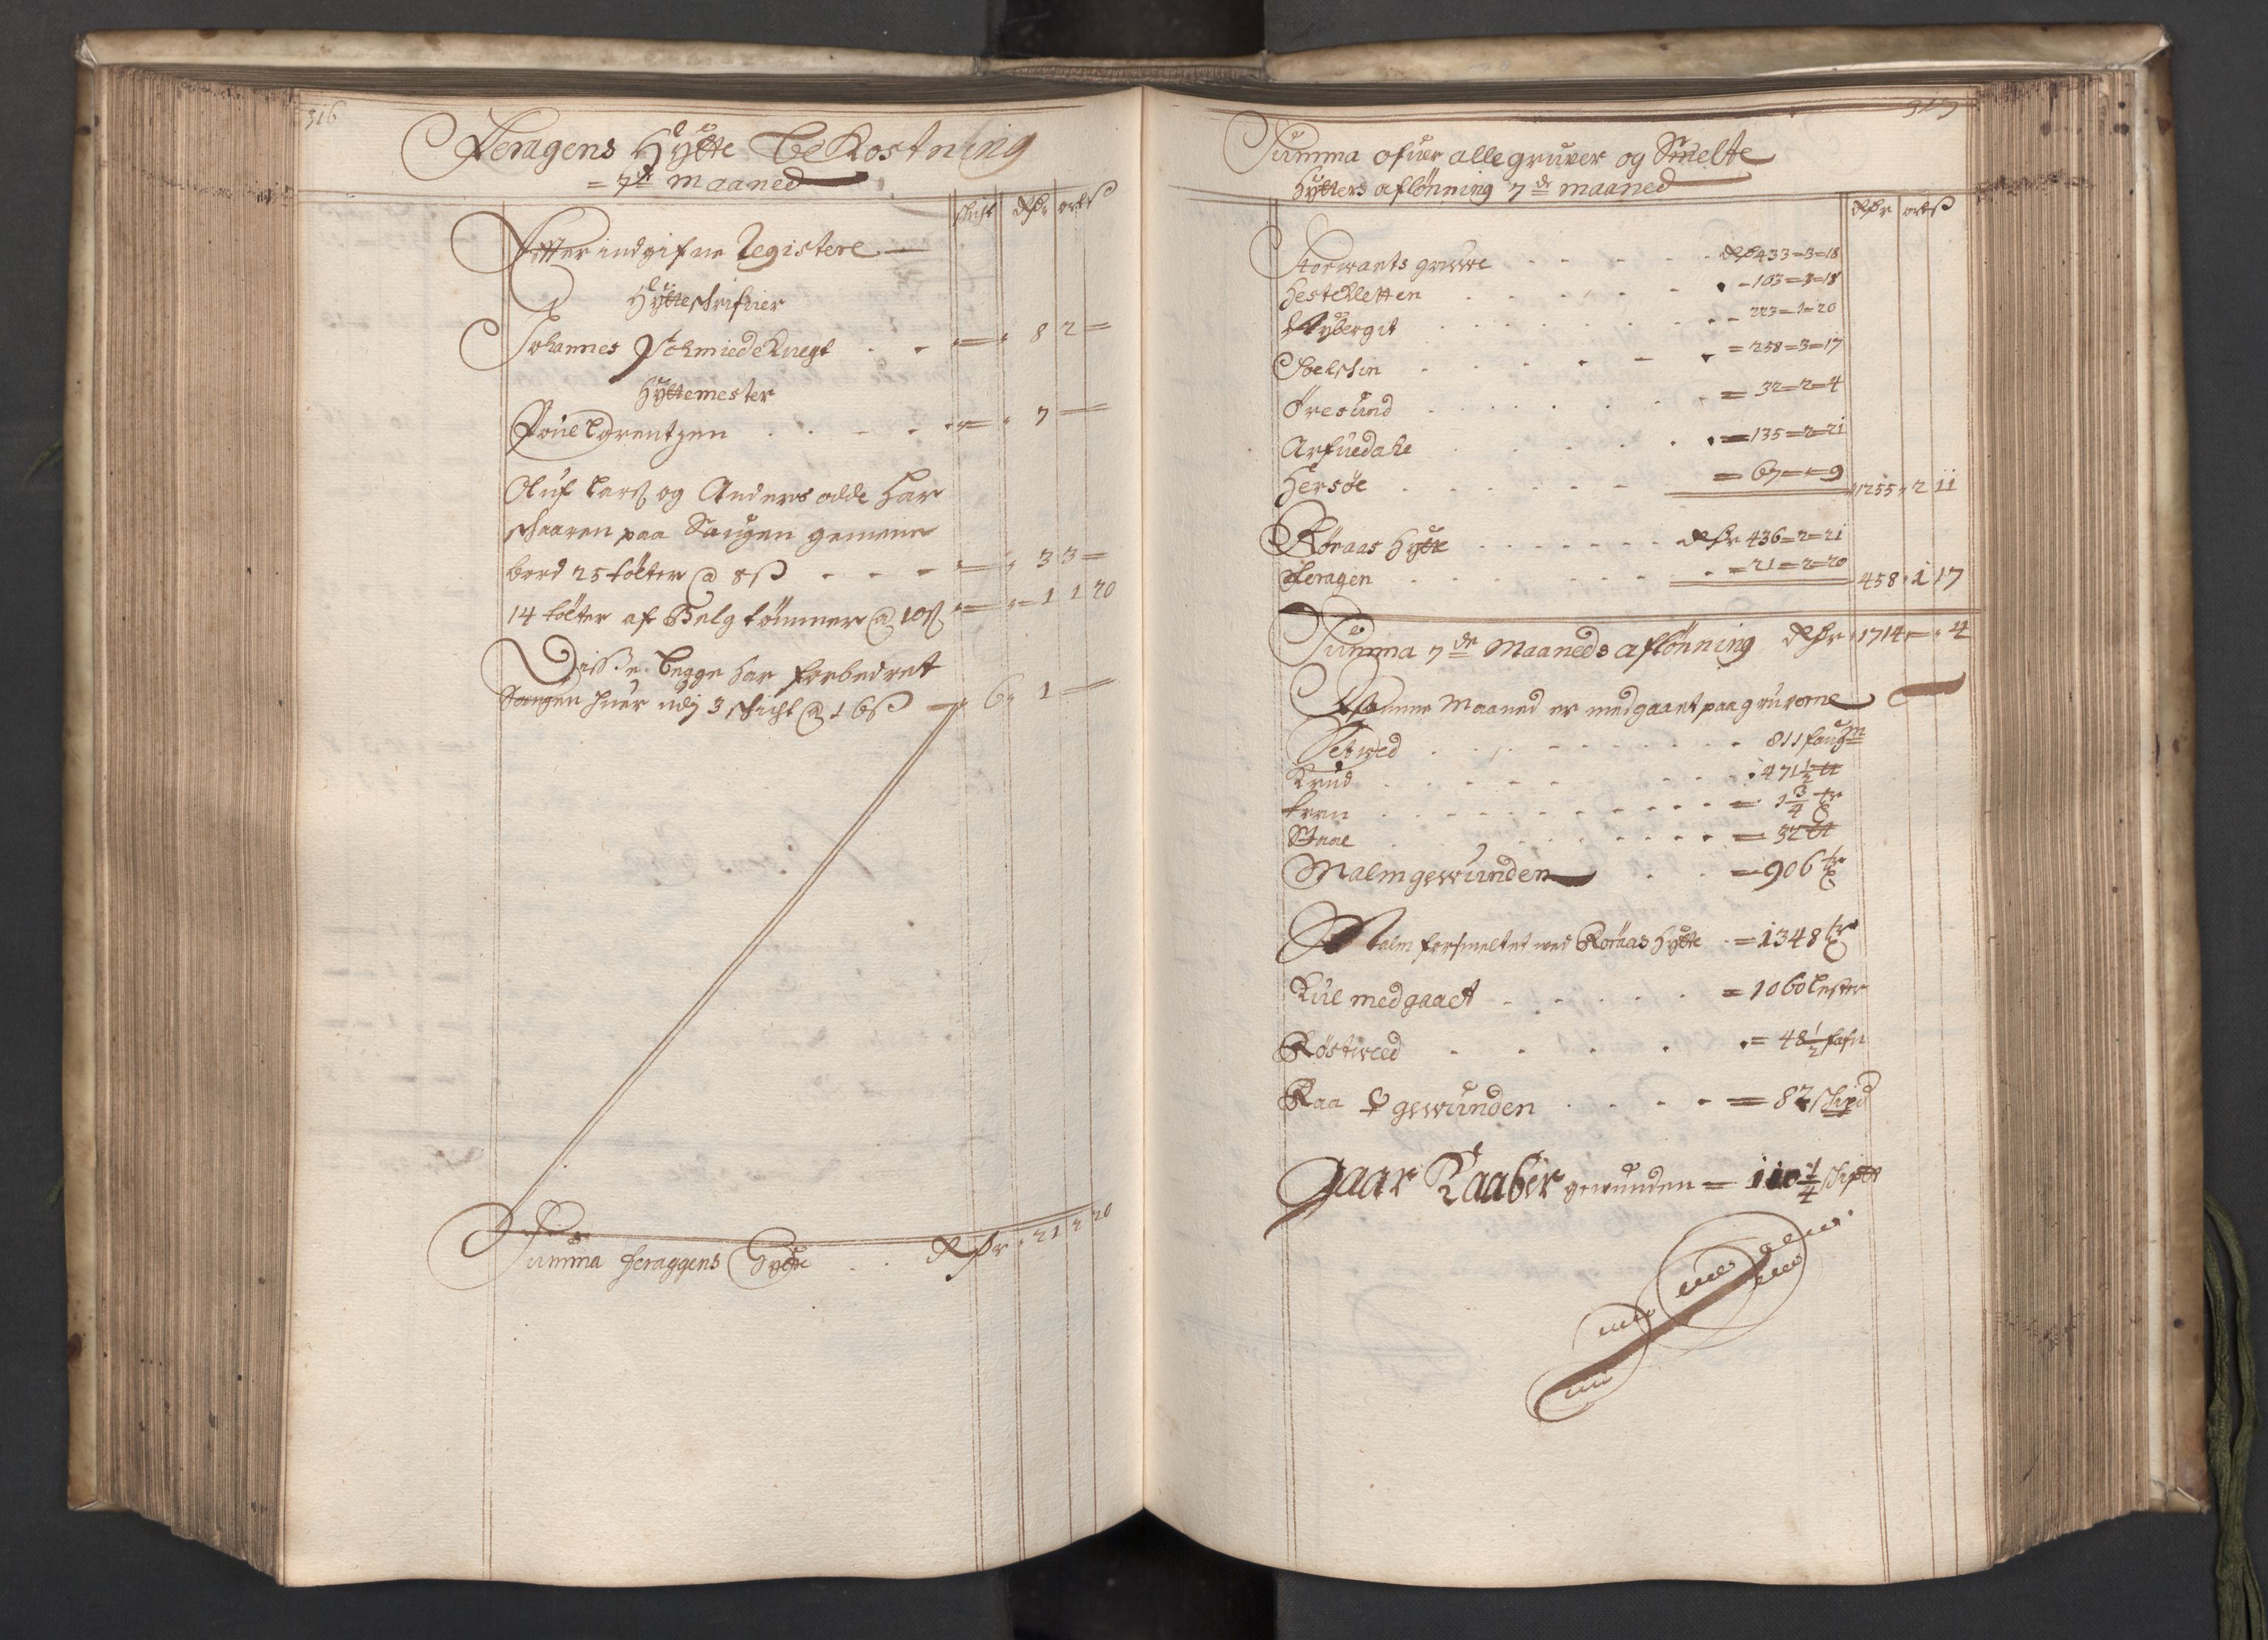 316
Feragens Hytte beKostning
= 7de maaned
schicht Rdr ort ß
Effter indgifne Registere
Hytteschrifuer
Johannes Schmiedeknegt . . = 8 2 =
Hyttemester
Pouel Lorentzen . . . . = 7 =
Oluf Larß og Anders odde har
schaaren paa Saugen gemene
bord 25 tölter @ 8 ß . . . = 3 3 =
14 tölter af Bielg tömmer @ 10 ß = 1 1 20
Disse begge har forbedret
Saugen huer udj 3 schicht @ 16 ß = 6 1 =
Summa feraggens Hytte . . Rdr 21 2 20
317
Summa ofuer alle gruver og Smelte
Hytters aflönning 7de maaned
Rdr ort ß
Storwarts gruwe . . . . . Rdr 433=3=18
HesteKletten . . . . . . - 103=3=18
Nybergit . . . . . . - 223=1=20
. . . . . = 258=3=17
Öresund . . . . . . = 32=2=4
Arfuedahl . . . . . = 135=2=21
Hersöe . . . . . . = 67==9 1255 2 11
Röraas Hytte . . . . . . . Rdr 436=2=21
feragen . . . . . . . . = 21=2=20 458 1 17
Summa 7de Maaneds aflönning Rdr 1714 = 4
Denne Maaned er medgaaet paa gruverne
Setwed . . . . . . . . . 811 faugn
Krud . . . . . . . . . 471 1/2 ℔
tran . . . . . . . . . = 1 3/4 tr
Staal . . . . . . . . = 32 ℔
Malm gewunden . . = 906 tr
Malm forsmeltet wed Röraas Hytte = 1348 tr
Kul medgaaet . . . . . = 1060 lester
Röstweed . . . . . = 48 1/2 fafn
Raa ♀ gewunden . . . . = 82 schipd
Gaar Kaaber gewunden = 110 1/4 schip℔